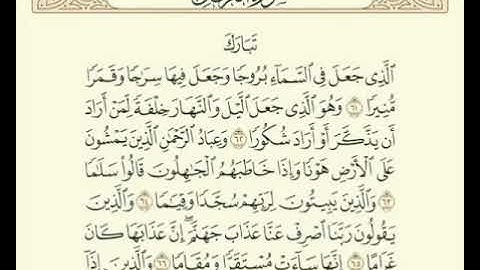 تَبَارَكَ
ٱلَّذِى جَعَلَ فِى ٱلسَّمَآءِ بُرُوجًا وَجَعَلَ فِيهَا سِرَٰجًا وَقَمَرًا
مُّنِيرًا ٦١ وَهُوَ ٱلَّذِى جَعَلَ ٱلَّيْلَ وَٱلنَّهَارَ خِلْفَةً لِّمَنْ أَرَادَ
أَن يَذَّكَّرَ أَوْ أَرَادَ شُكُورًا ٦٢ وَعِبَادُ ٱلرَّحْمَٰنِ ٱلَّذِينَ يَمْشُونَ
عَلَى ٱلْأَرْضِ هَوْنًا وَإِذَا خَاطَبَهُمُ ٱلْجَٰهِلُونَ قَالُوا۟ سَلَٰمًا
٦٣ وَٱلَّذِينَ يَبِيتُونَ لِرَبِّهِمْ سُجَّدًا وَقِيَٰمًا ٦٤ وَٱلَّذِينَ
يَقُولُونَ رَبَّنَا ٱصْرِفْ عَنَّا عَذَابَ جَهَنَّمَ ۖ إِنَّ عَذَابَهَا كَانَ
غَرَامًا ٦٥ إِنَّهَا سَآءَتْ مُسْتَقَرًّا وَمُقَامًا ٦٦ وَٱلَّذِينَ إِذَآ